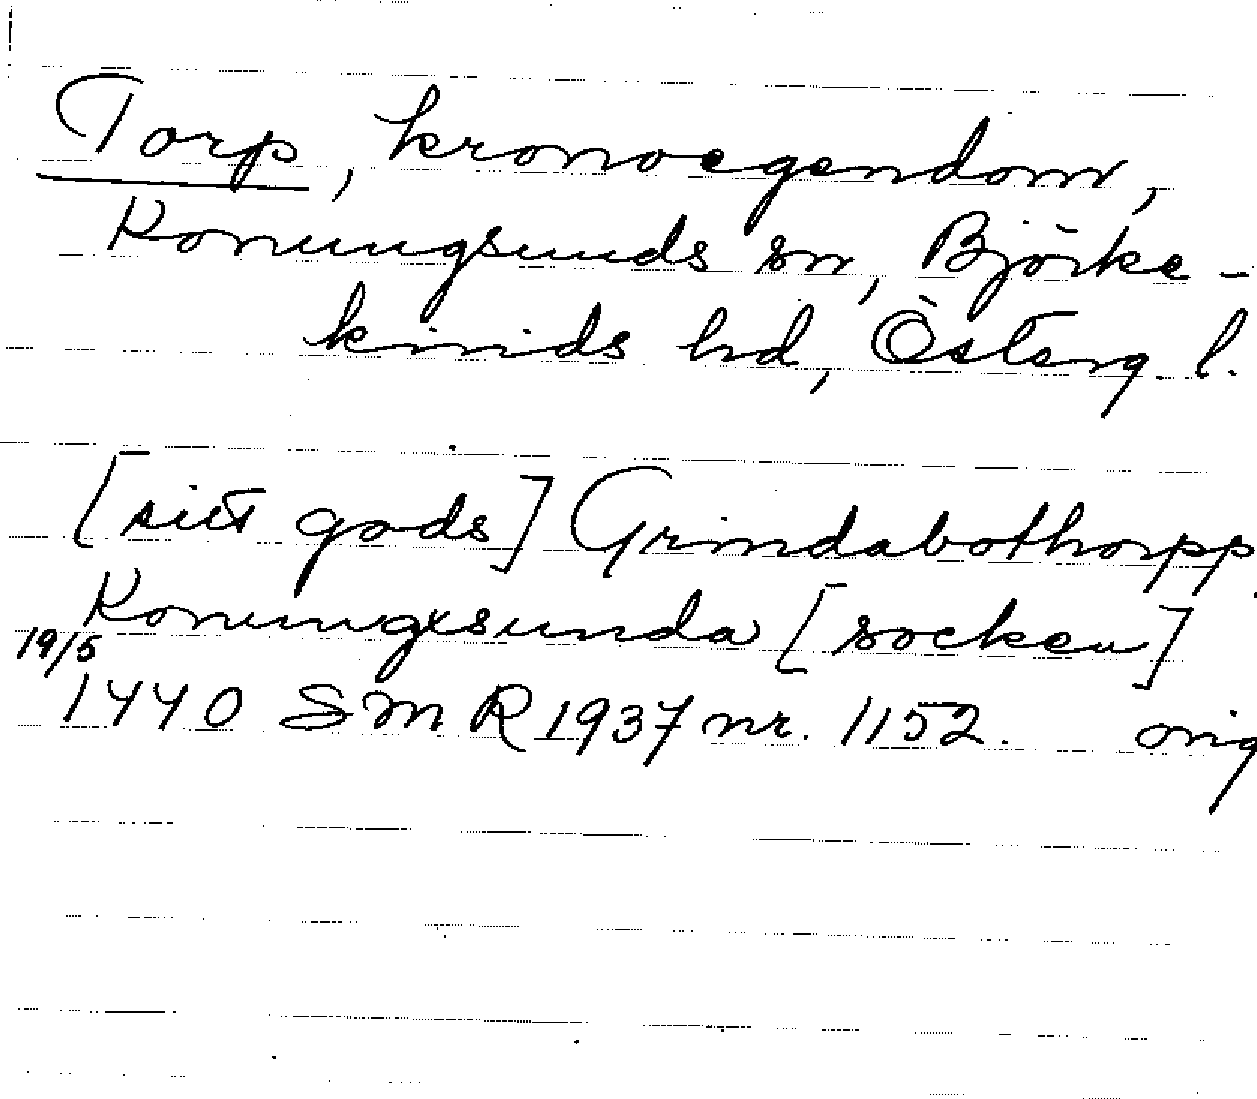 Torp, kronoegendom,
Konungsunds sn, Björke-
kinds hd, Österg. l.
[sitt gods] Grindabothorpp
Konungxsunda [socken]
19/5
1440 SMR 1937 nr. 1152. orig